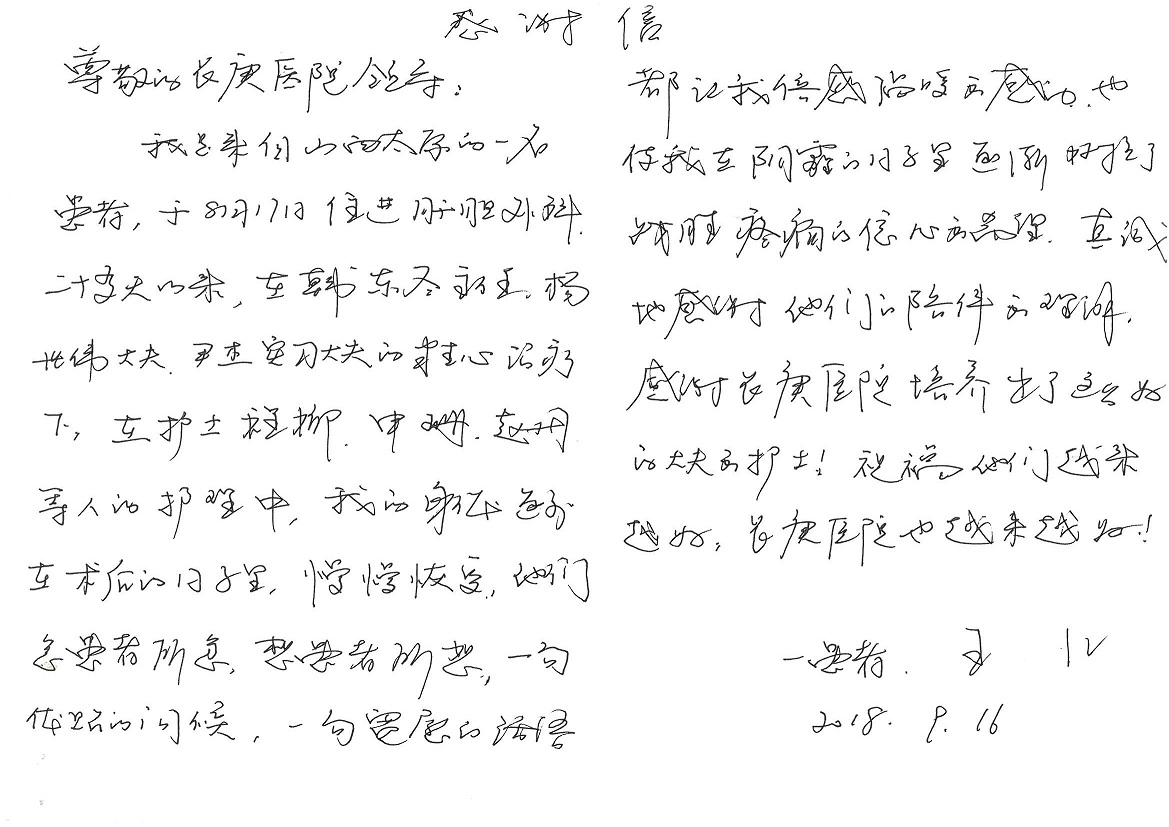 感谢信
尊敬的长庚医院领导:
我是来自山西太原的一名
患者,于8月17日住进肝胆外科.
二十多天以来,在韩东冬主任.杨
世伟大夫.尹杰实习大夫的精心治疗
下,在护士程柳.申珊.赵丹
等人的护理中,我的身体逐渐
在术后的日子里,慢慢恢复,他们
急患者所急,想患者所想,一句
体贴的问候,一句宽慰的话语
都让我倍感温暖和感动.也
使我在阴霾的日子里逐渐树立了
战胜疼病的信心和 .真诚
地感谢他们的陪伴和理解.
感谢长庚医院培养出了这么好
的大夫和护士!祝福他们越来
越好,长庚医院也越来越好!
一患者.王
2018.9.16